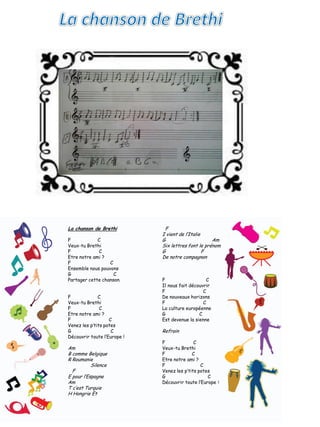 La chanson de Brethi
La chanson de Brethi
F C
Veux-tu Brethi
F C
Etre notre ami ?
F C
Ensemble nous pouvons
G C
Partager cette chanson
F C
Veux-tu Brethi
F C
Etre notre ami ?
F C
Venez les p'tits potes
G C
Découvrir toute l'Europe !
Am
B comme Belgique
R Roumanie
Silence
F
E pour l'Espagne
Am
T c'est Turquie
H Hongrie Et
F
I vient de l'Italie
G Am
Six lettres font le prénom
G F
De notre compagnon
F C
Il nous fait découvrir
F C
De nouveaux horizons
F C
La culture européenne
G C
Est devenue la sienne
Refrain
F C
Veux-tu Brethi
F C
Etre notre ami ?
F C
Venez les p'tits potes
G C
Découvrir toute l'Europe !